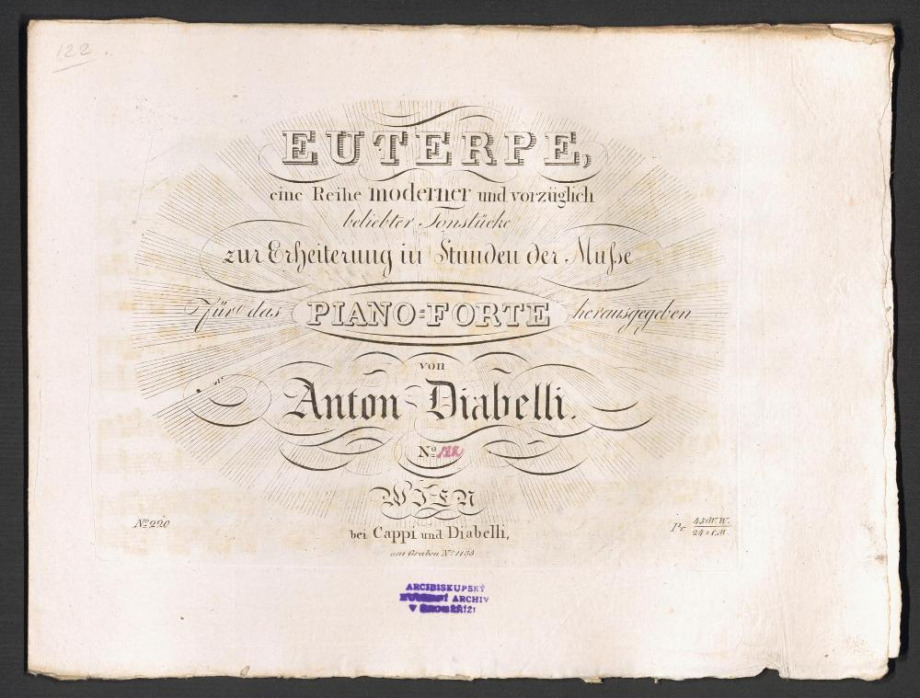 122.
EUTERPE,
eine Reihe moderner und vorzüglich
beliebter Tonstücke
zur Erheiterung in Stunden der Muſse
Für das PIANO=FORTE herausgegeben
von
Anton Diabelli.
No.
WIEN
No. 220
bei Cappi und Diabelli,
am Graben No. 1133
Pr.
ARCIBISKUPSKÝ
ARCHIV
V